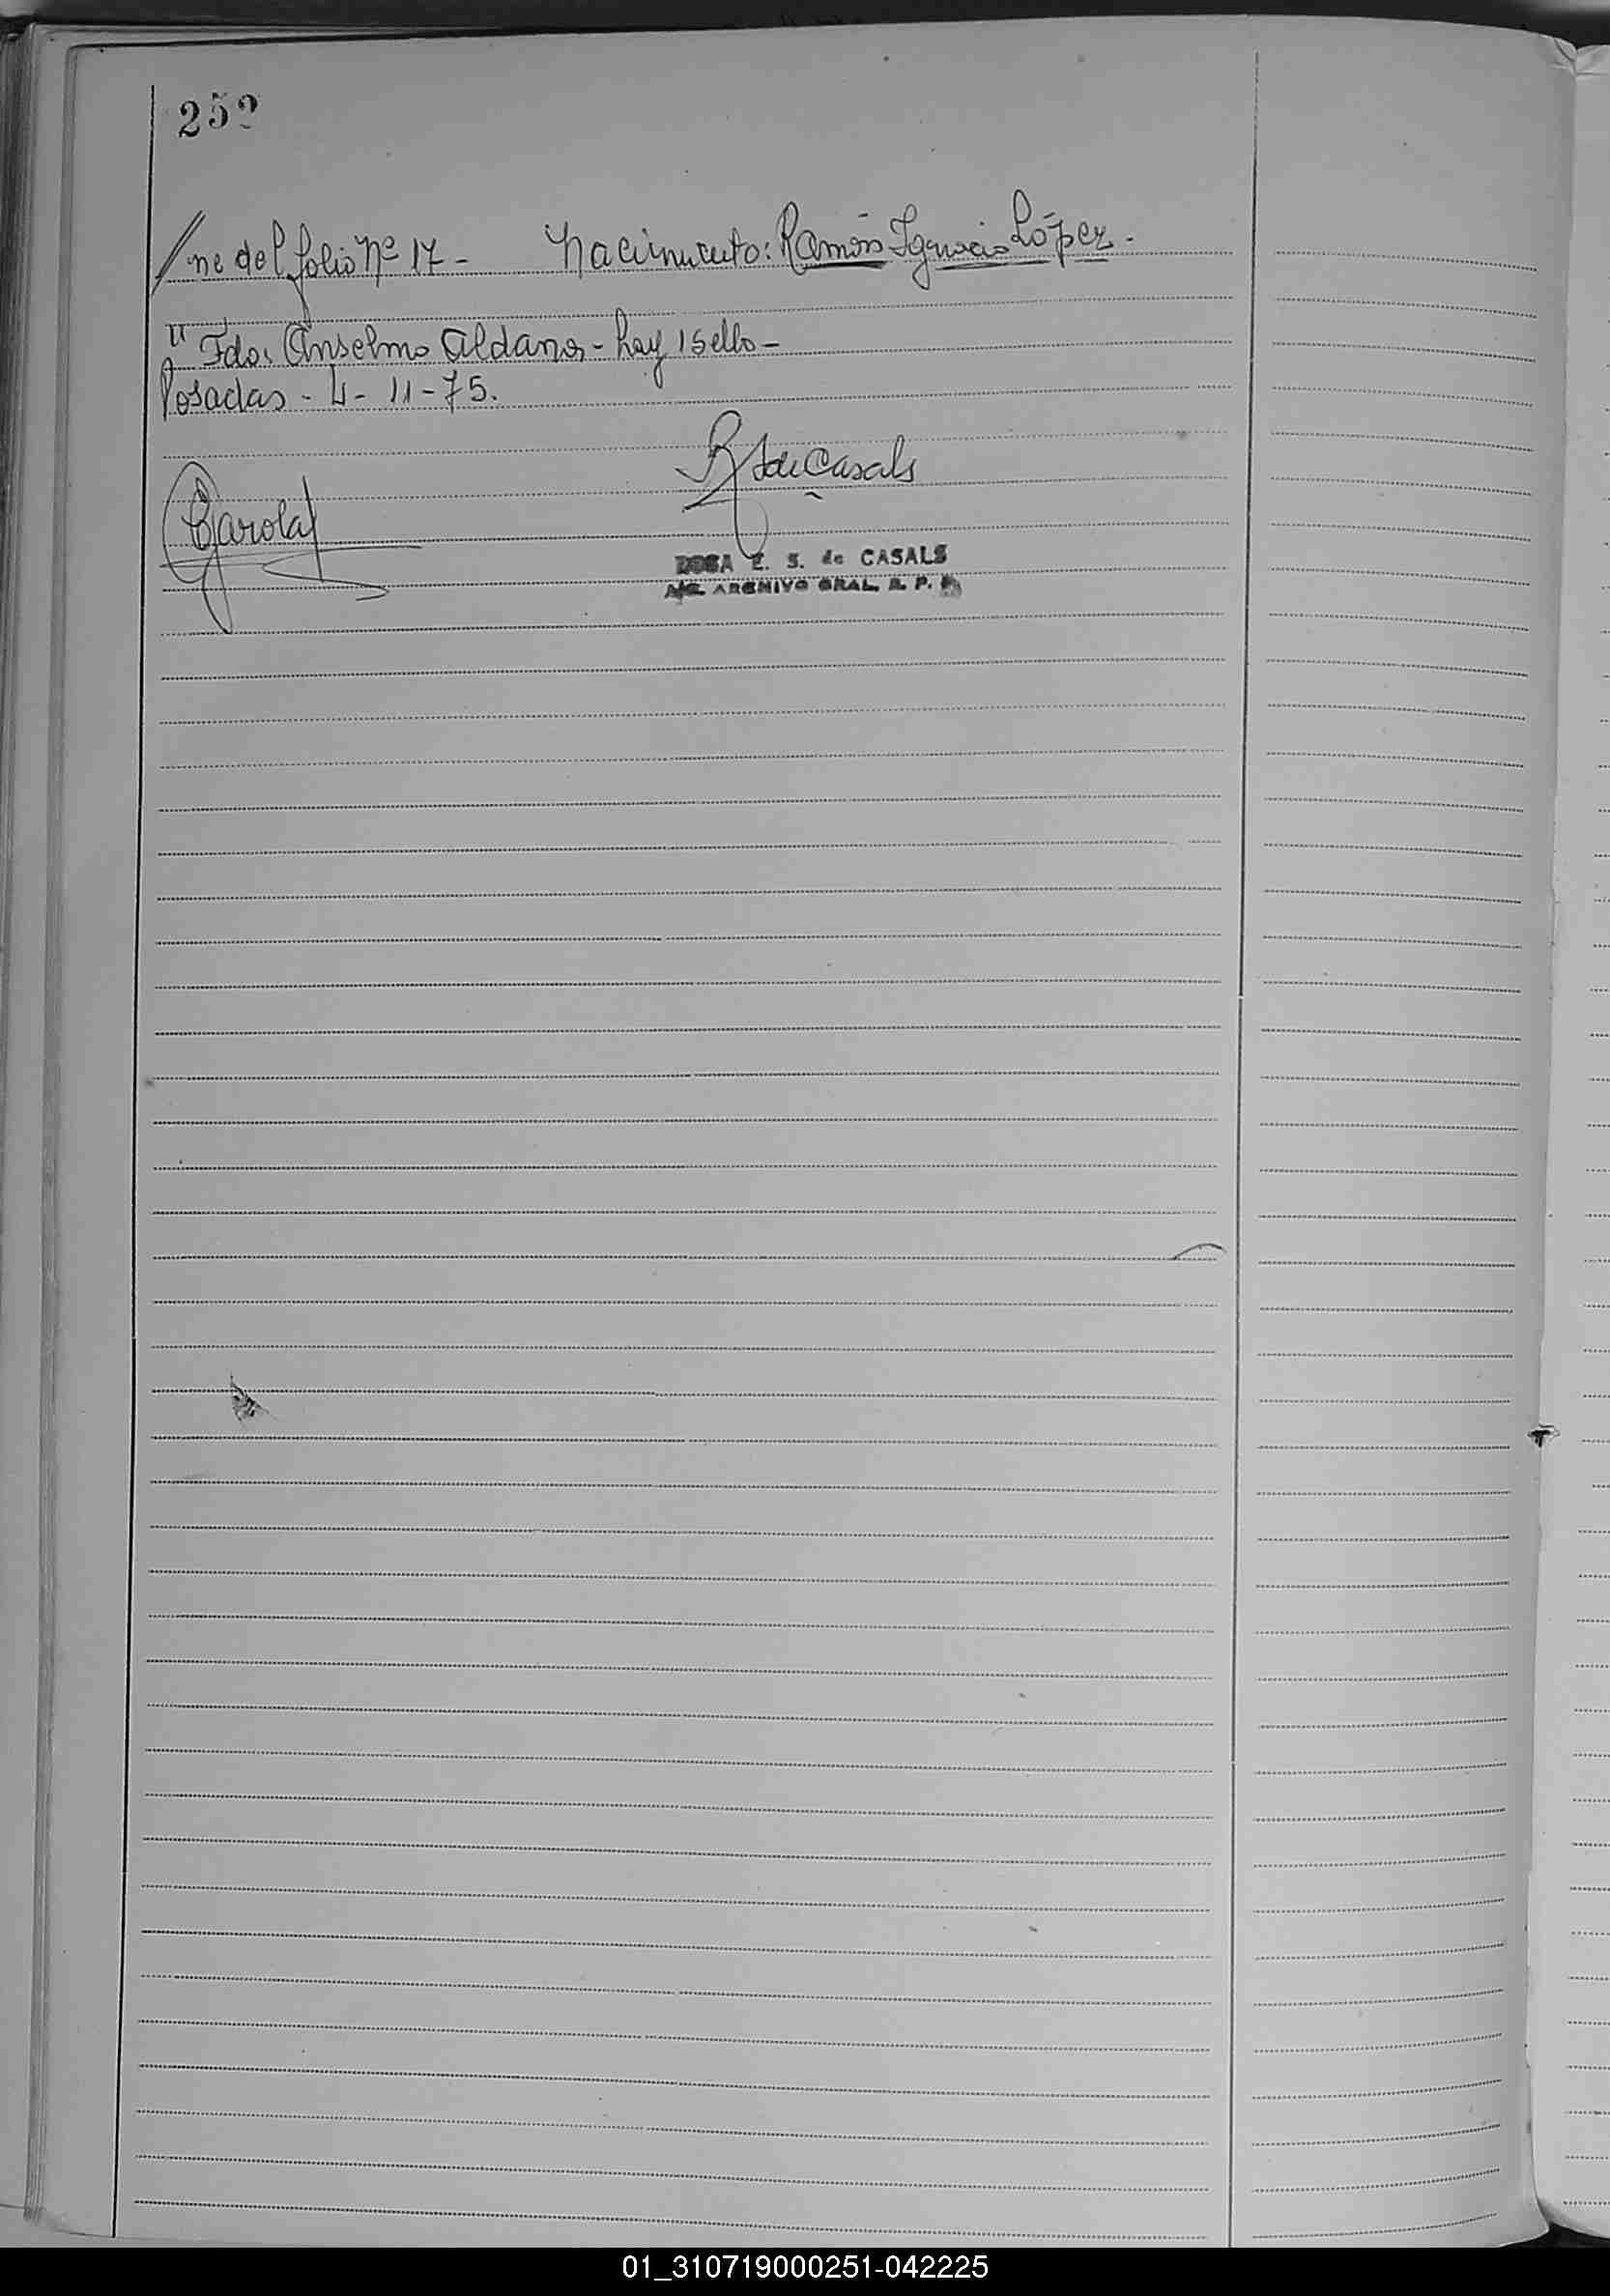 252
//ne del folio Nº 17 - Nacimiento: Ramón Ignacio López.
" Fdo: Anselmo Aldana - hay 1 sello -
Posadas - 4 - 11 - 75.
R S de Casals
Garola
ROSA E. S. de CASALS
A/C. ARCHIVO GRAL. R. P. P.
01_310719000251-042225